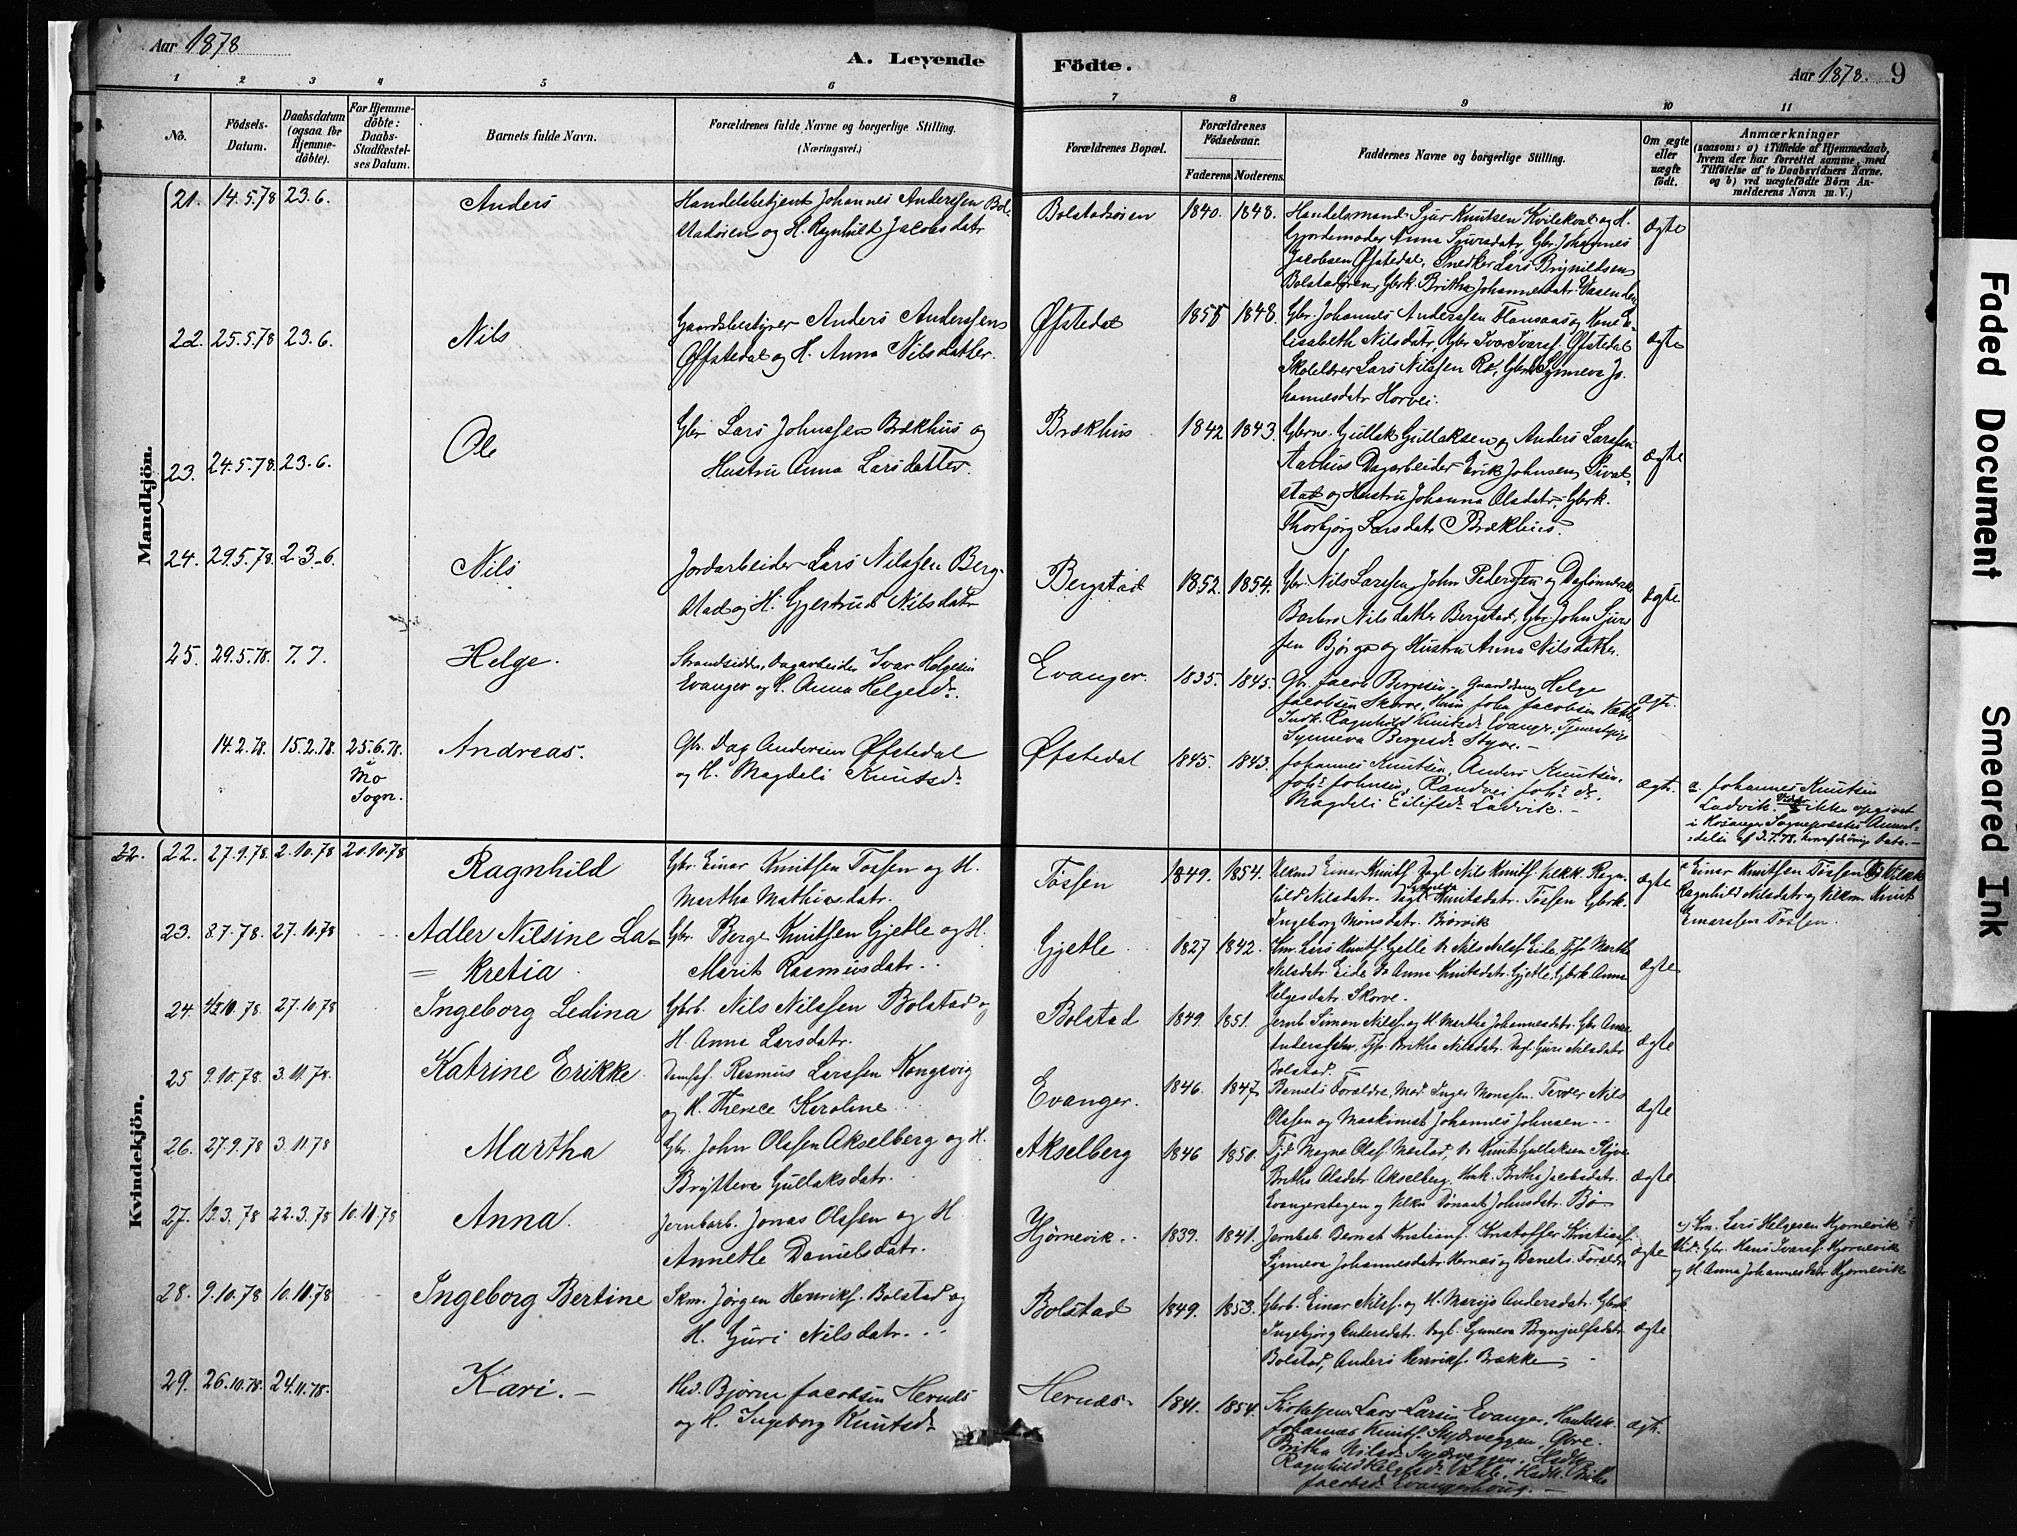 Aar 1878
A. Levende
Fødte.
Aar 1878. 9
1 2 3 4 5 6 7 8 9 10 11
No.
Födsels-
Datum.
Daabsdatum
(ogsaa for
Hjemme-
döbte).
For Hjemme-
döbte:
Daabs-
Stadfæstel-
ses Datum.
Barnets fulde Navn.
Forældrenes fulde Navne og borgerlige Stilling.
(Næringsvei.)
Forældrenes Bopæl.
Forældrenes
Födselsaar.
Faderens. Moderens.
Faddernes Navne og borgerlige Stilling.
Om ægte
eller
uægte
födt.
Anmærkninger
(saasom: a) i Tilfælde af Hjemmedaab,
hvem der har forrettet samme, med
Tilföielse af to Daabsvidners Navne,
og b) ved uægtefödte Börn An-
melderens Navn m. V.)
Mandkjön.
21. 14.5.78 23.6. Anders
Handelsbetjent Johannes Anderssen Bol-
stadøren og H. Ragnhild Jacobsdatr
Bolstadøren 1840. 1848.
Handelsmand Sjur Knutsen Kvilekval og H.
Gjordemoder Anna Sjursdatr, Gbr. Johannes
Jacobsen Øfstedal, Snedker Lars Brynildsen
Bolstadøren, Gbrk. Britha Johannesdatr Væsenden
ægte
22. 25.5.78 23.6. Nils
Gaardsbestyrer Anders Anderssen
Øfstedal og H. Anna Nilsdatter.
Øfstedal 1855 1848.
Gbr. Johannes Anderssen Flansaas og Kone E-
lisabeth Nilsdatr, Gbr Ivar Ivars. Øfstedal
Skolelærer Lars Nilssen Rø, Gbrk Synneva Jo-
hannesdatr Horvei.
ægte
23. 24.5.78. 23.6. Ole
Gbr Lars Johnssen Brækhus og
Hustru Anna Larsdatter.
Brækhus 1842 1843.
Gbrne. Gullak Gullaksen og Anders Larssen
Aarhus Dagarbeider Erik Johnsen Sival-
stad og Hustru Johanna Olsdatr Gbrk.
Thorbjørg Larsdatr Brækhus.
ægte
24. 29.5.78 23.6 Nils
Jordarbeider Lars Nilssen Berg-
stad og H. Gjertrud Nilsdatr
Bergstad 1852. 1854.
Gbr. Nils Larssen, John Pederssen og
Barbro Nilsdatter Bergstad, Gbr. John Sjurs-
sen Bjørge og Hustru Anna Nilsdatter.
ægte
25. 29.5.78. 7.7. Helge.
Strandsidder, Dagarbeider Ivar Helgesen
Evanger og H. Anna Helgesdr.
Evanger. 1835. 1845.
Gbr. Jacob Bergesen, Gaarddreng Helge
Jacobsen Skorve, Huusm John Jacobsen
Indk. Ragnhild Knutsdr Evanger, Tjenestepige
Synneva Bergesdr Styve.
ægte.
14.2.78. 15.2.78. 25.6.78. i Mo Sogn. Andreas.
Gbr. Dag Andersen Øfstedal
og H. Magdeli Knutsdr
Øfstedal 1845. 1843.
Johannes Knutsen, Anders Knutsen,
Johs Johnsen, Randvei Johs dr.
Magdeli Eilifsdr Ladvik.
ægte.
a. Johannes Knutsen
Ladvik. ikke opgivet
i Hosanger Sognepræsts Anmel-
delse af 3.7.78, hvorfor Dato.
Kvindekjön.
22. 22. 27.9.78. 2.10.78 20.10.78 Ragnhild
Gbr. Einar Knutsen Tøssen og H.
Martha Mathiasdatr.
Tøssen 1849. 1854.
Ungk Einar Knuts. Dagl. Nils Knuts. Vikk. Ragn-
hild Nilsdatr. Dagl. Knutsdatr. Tøssen Gbrk.
Ingeborg Monsdatr. Brørvik
ægte
Einar Knutsen Tøssen
Ragnhild Nilsdatr og Knut
Einarssen Tøssen.
23. 8.7.78. 27.10.78 Adler Nilsine La-
kretia.
Gbr. Berge Knutsen Gjetle og H.
Marit Rasmusdatr.
Gjetle 1827 1842.
Hm. Lars Knuts. Gjelle Nils Nilss. Eide Tjp. Martha
Nilsdatr. Eide Anna Knutsdatr. Gjetle, Gbrk. Anna
Helgesdatr. Skorve.
ægte
24. 4/5 10.78. 27.10.78 Ingeborg Ledina
Gbrb. Nils Nilssen Bolstad og
H. Anna Larsdatr.
Bolstad 1849. 1851.
Jernb. Simon Nilss. og H. Martha Johannesdatr. Gbr. Anders
Anderssen, Tjp. Britha Nilsdatr. Dagl. Guri Nilsdatr
Bolstad.
ægte
25 9.10.78. 3.11.78. Katrine Erikke
Rasmus Larssen Kongsvig
og H. Therese Karoline
Evanger. 1846. 1847
Barnets Forældre, Mad. Inger Monssen. Nils
Olssen og Maskinist Johannes Johnsen
ægte
26. 27.9.78 3.11.78 Martha
Gbr. John Olssen Akselberg og H.
Brytteva Gullaksdatr.
Akselberg 1846 1850.
Tjd. Magne Olss. Mestad, Knut Gullaksen
Britha Olsdatr. Akselberg. Britha Jacobsdatr.
Evangerstegen og Johnsdatr. Bø
ægte
27. 19.3.78 22.3.78 10.11.78 Anna.
Jernbarb. Jonas Olssen og H
Annette Danielsdatr.
Hjørnevik. 1839. 1841.
Jernbab. Bernt Kristians. Kristoffer Kristians.
Synneva Johannesdatr. Hernæs og Barnets Forældre
ægte
Km. Lars Helgesen Hjørnevik
Vid: Gbr. Hans Ivarss. Hjørnevik
og H. Anna Johannesdatr Hjørnevik
28. 9.10.78 10.11.78 Ingeborg Bertine
Skm. Jørgen Henriks. Bolstad og
H. Guri Nilsdatr.
Bolstad 1849. 1853.
Gbrb. Einar Nilss. og H. Marijo Andersdatr. Gbrk.
Ingebjørg Andersdatr. Dagl. Synneva Brynjulfsdatr
Bolstad, Anders Henriks. Brække
ægte
29. 26.10.78. 24.11.78. Kari.
Hed. Bjørne Jacobsen Hernæs
og H. Ingeborg Knutsdr
Hernæs 1841. 1854.
Kirketjener Lars Larsen Evanger, Handelsk.
Johannes Knuts.
Britha Nilsdr
Ragnhild Helgesdr
Jacobsdr Evangerhoug.
ægte.
Faded Document
Smeared Ink